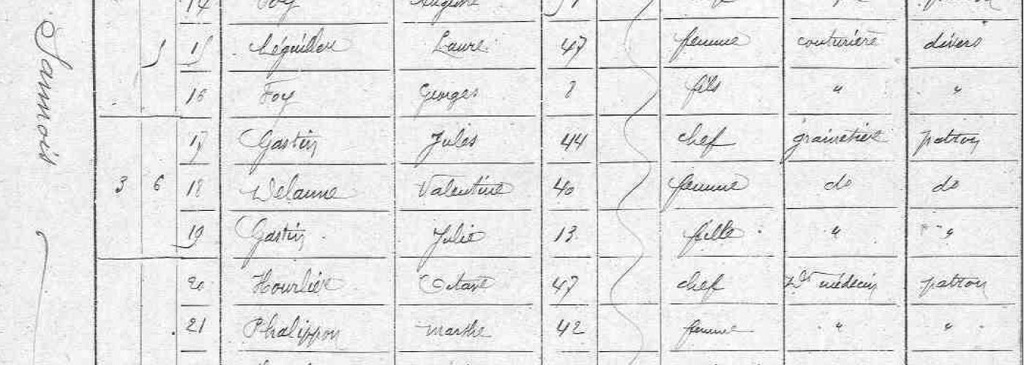 Sannois
14 Foy
5 15 Léguillere Laure 47 femme couturière divers
16 Foy Georges 8 fils " "
17 Gastin Jules 44 chef grainetier patron
3 6 18 Delanne Valentine 40 femme do do
19 Gastin Julie 13 fille " "
20 Hourlier Octave 47 chef Dr médecin patron
21 Phalippon Marthe 42 femme " "